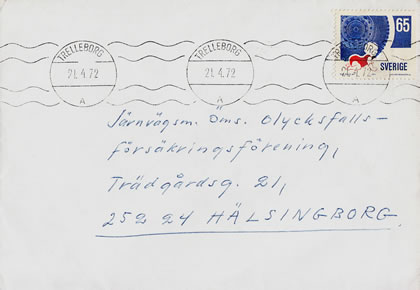 65
SVERIGE
TRELLEBORG TRELLEBORG TRELLEBORG
21.4.72 21.4.72 21.4.72
A A A
Järnvägsm. Öms. Olycksfalls-
försäkringsförening,
Trädgårdsg. 21,
252 24 HÄLSINGBORG